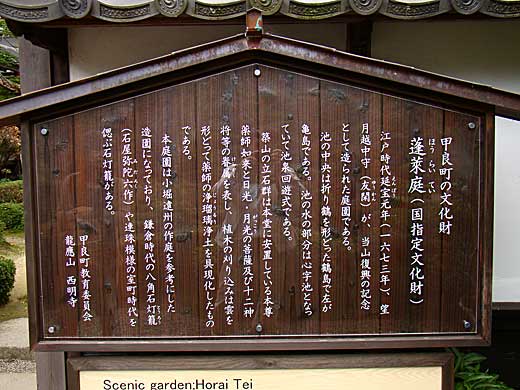 甲良町の文化財
蓬莱庭(国指定文化財)
ほうらいてい
江戸時代延宝元年(一六七三年)、望
えんぽう
月越中守(友閑)が、当山復興の記念
ゆうかん
として造られた庭園である。
池の中央は折り鶴を形どった鶴島で左が
亀島である。池の水の部分は心字池となっ
ていて池泉回遊式である。
築山の立石群は本堂に安置している本尊
薬師如来と日光、月光の菩薩及び十二神
将等の眷属を表し、植木の刈り込みは雲を
形どって薬師の浄瑠璃浄土を具現化したもの
である。
本庭園は小堀遠州の作庭を参考にした
造園になっており、鎌倉時代の八角石灯籠
(石屋弥陀六作)や連珠模様の室町時代を
みだろく
偲ぶ石灯籠がある。
甲良町教育委員会
龍應山 西明寺
Scenic garden;Horai Tei